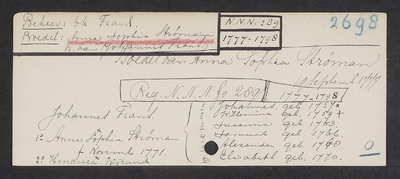 Beheer: b/k Frans.
Boedel: Anna Sophia Ströman
N.N.N. 289
1777-1798
2698
Boedel van Anna Sophia Ströman
Reg. N.N.N. fo 289
1777-1798
Johannes Frans.
1e Anna Sophia Ströma
† Novemb 1771.
2e Hendrica
1 Johannes geb. 1757 x
2 Willemina geb. 1759 x
3 Susanna geb. 1763
4 Samuel geb. 1766.
5 Alexander geb. 1768
6 Elisabeth geb. 1770.
0